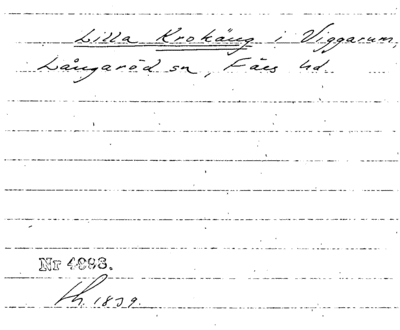 Lilla Krokäng i Viggarum,
Långaröd sn, Färs hd.
Nr 4898.
Lh. 1839.